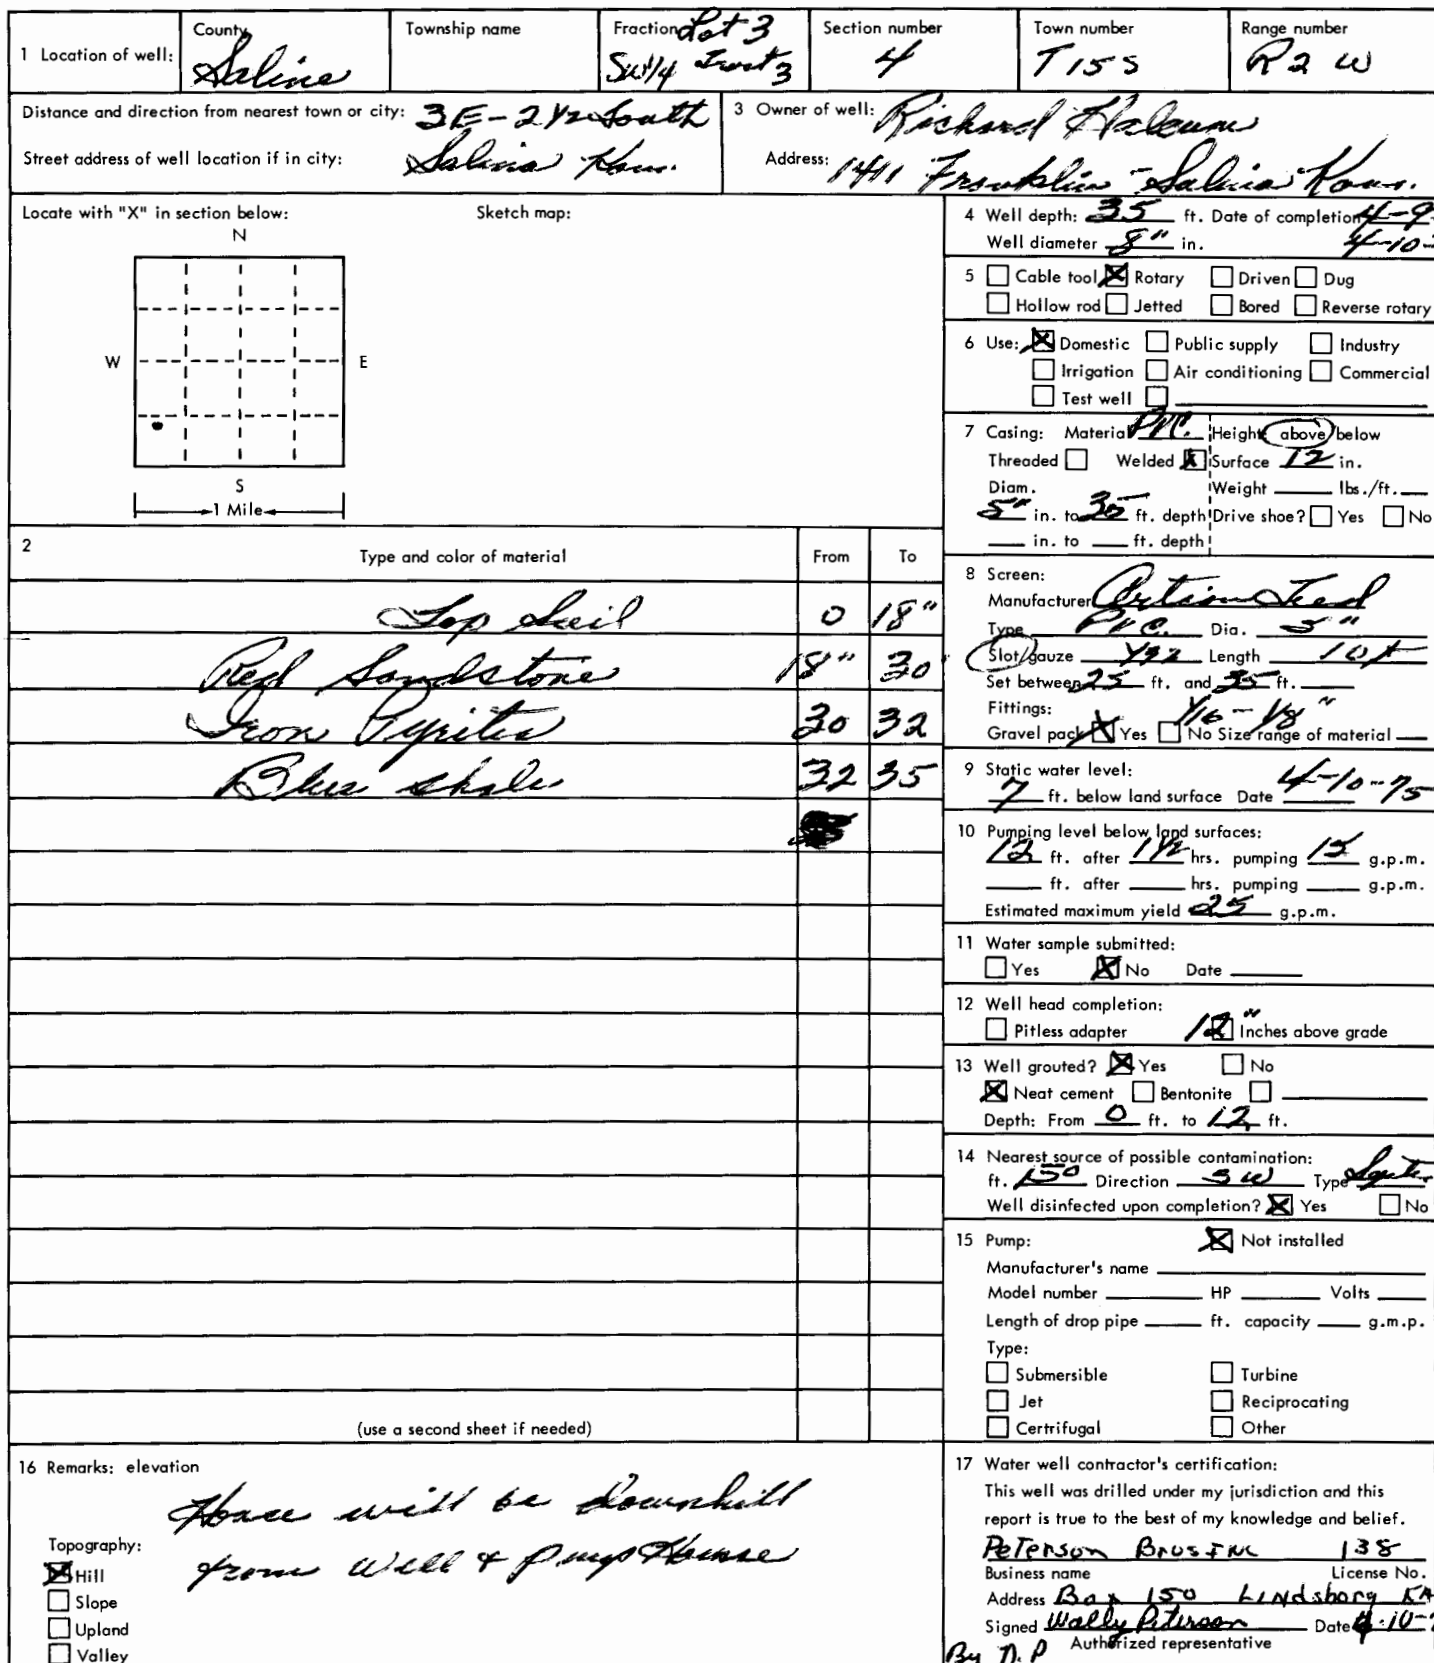 1 Location of well: County Saline Township name Fraction Lot 3 SW1/4 Tract 3 Section number 4 Town number T15S Range number R2W
Distance and direction from nearest town or city: 3E-2 1/2 South
Street address of well location if in city: Salina Kans.
3 Owner of well: Richard
Address: 1411 Franklin - Salina Kans.
Locate with "X" in section below: Sketch map:
N
W E
S
1 Mile
2 Type and color of material From To
Top Soil 0 18"
Red Sandstone 18" 30
Iron Pyrites 30 32
Blue shale 32 35
(use a second sheet if needed)
4 Well depth: 35 ft. Date of completion 4-9-
Well diameter 8" in. 4-10-
5 Cable tool Rotary Driven Dug
Hollow rod Jetted Bored Reverse rotary
6 Use: Domestic Public supply Industry
Irrigation Air conditioning Commercial
Test well
7 Casing: Material PVC. Height: above/below
Threaded Welded Surface 12 in.
Diam. Weight lbs./ft.
5" in. to 35 ft. depth Drive shoe? Yes No
in. to ft. depth
8 Screen:
Manufacturer
Type PVC. Dia. 5"
Slot/gauze Length 10ft
Set between 25 ft. and 35 ft.
Fittings: 1/16-1/8"
Gravel pack Yes No Size range of material
9 Static water level:
7 ft. below land surface Date 4-10-75
10 Pumping level below land surfaces:
12 ft. after 1 1/2 hrs. pumping 15 g.p.m.
ft. after hrs. pumping g.p.m.
Estimated maximum yield 25 g.p.m.
11 Water sample submitted:
Yes No Date
12 Well head completion:
Pitless adapter 12" Inches above grade
13 Well grouted? Yes No
Neat cement Bentonite
Depth: From 0 ft. to 12 ft.
14 Nearest source of possible contamination:
ft. 150 Direction SW Type Septic
Well disinfected upon completion? Yes No
15 Pump: Not installed
Manufacturer's name
Model number HP Volts
Length of drop pipe ft. capacity g.m.p.
Type:
Submersible Turbine
Jet Reciprocating
Certrifugal Other
16 Remarks: elevation
House will be downhill
from Well & Pump House
Topography:
Hill
Slope
Upland
Valley
17 Water well contractor's certification:
This well was drilled under my jurisdiction and this
report is true to the best of my knowledge and belief.
Peterson Bros Inc 138
Business name License No.
Address Box 150 Lindsborg KA
Signed Wally Peterson Date 4-10-
Authorized representative
By D.P